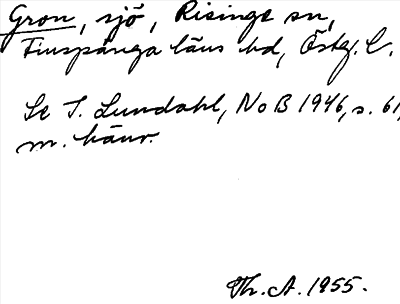 Gron, sjö, Risinge sn,
Finspånga läns hd, Östg. l.
Se I. Lundahl, NoB 1946, s. 61,
m. hänv.
Th. A. 1955.